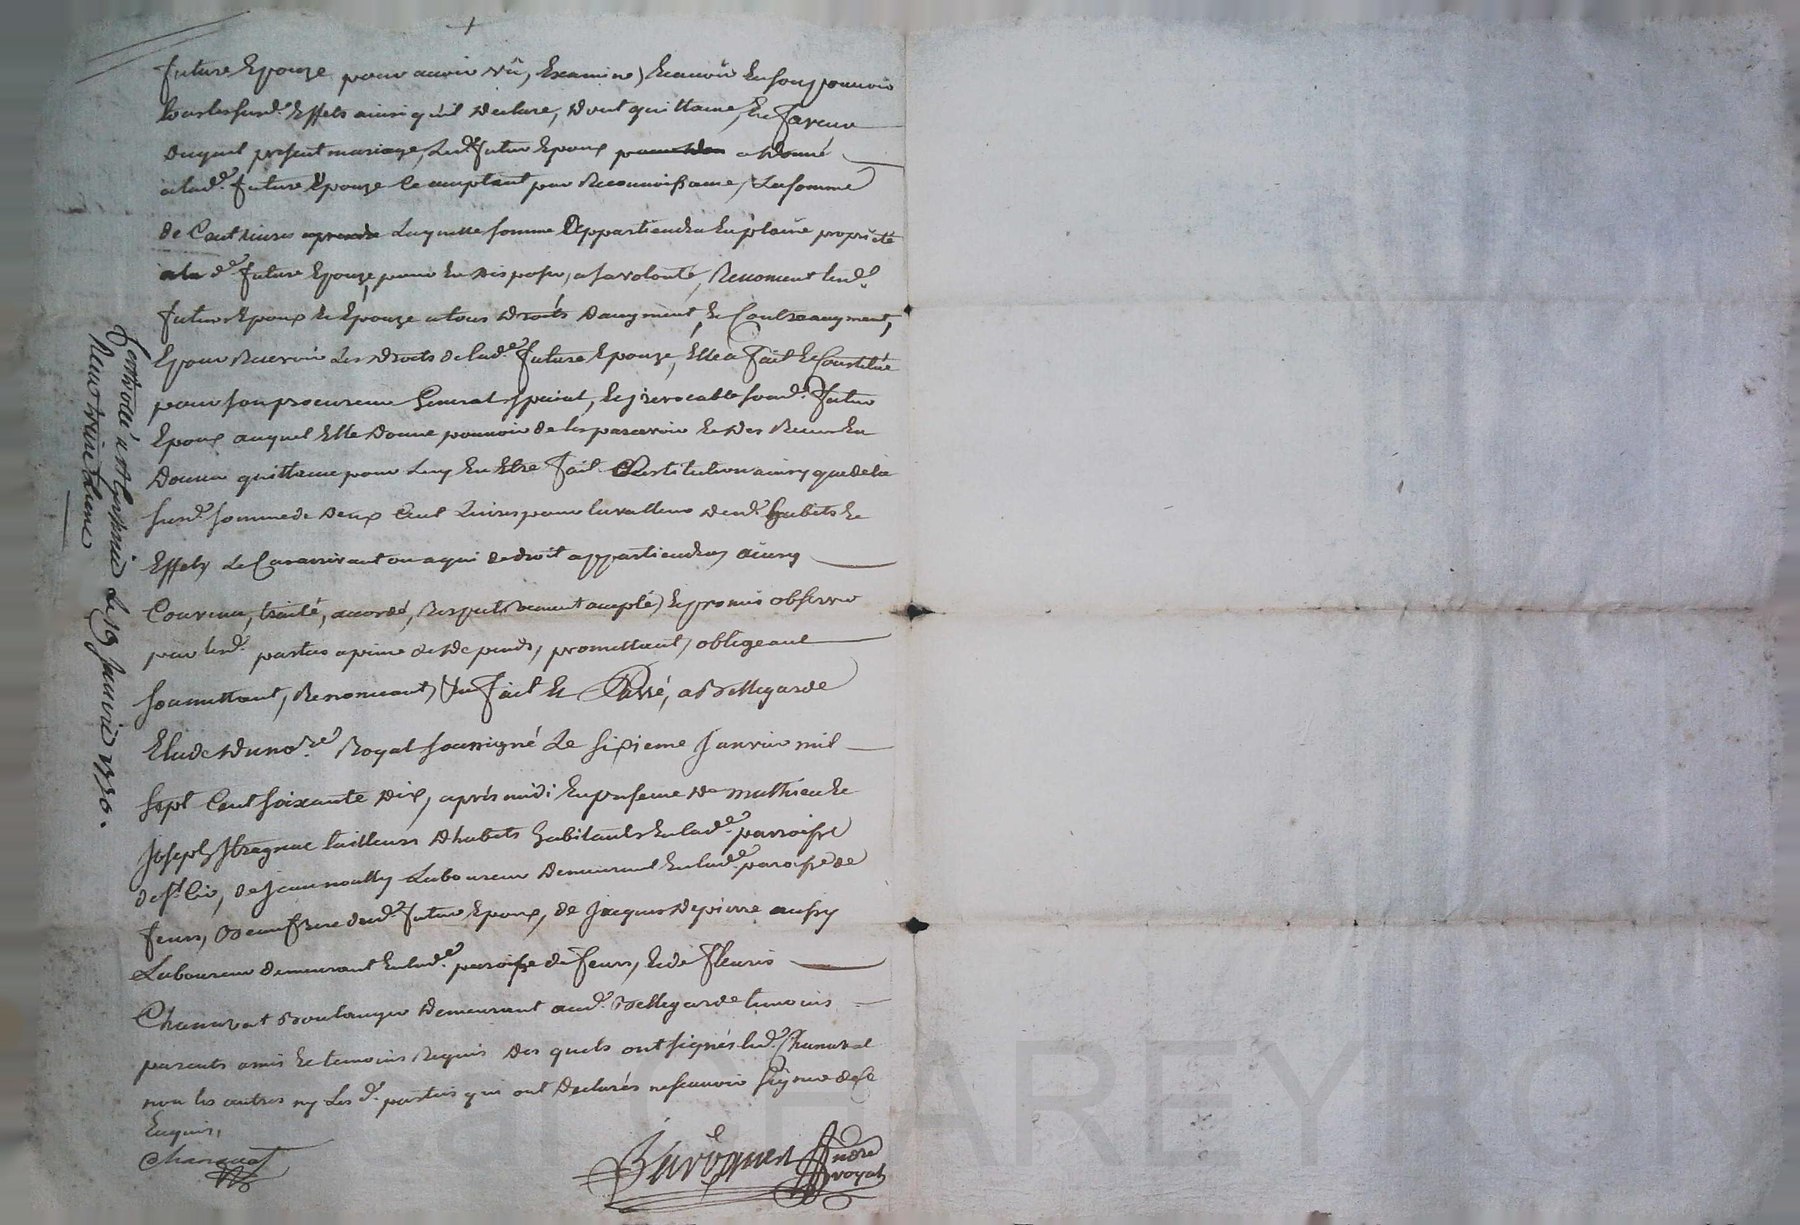 future Epouze pour avoir vû, Examiné, Et avoir En son pouvoir
tous les susd. Effets ainsi qu'il Declare, Dont quittance, En faveur
duquel présent mariage, Led. futur Epoux a donné
a lad.e future Epouze Ce acceptant par Reconnoissance, La somme
de Cent Livres Laquelle somme appartiendra En plaine propriété
a la d.e future Epouze, pour En disposer, a sa volonté, Renonceant lesd.
futurs Epoux Et Epouze a tous droits daugment, Et Contreaugment,
Et pour Recevoir Les droits de lad.e future Epouze, Elle a fait Et Constitué
pour son procureur General spécial, Et irrevocable sond. futur
Epoux auquel Elle donne pouvoir de les parcevoir Et des Recus En
Donner quittance pour Luy En Etre fait Restitution ainsy que de la
susd.e somme de deux Cent Livres pour la valleur desd. habits Et
Effets Le Cas arrivant ou a qui de droit appartiendra, ainsy
Convenu, traité, accordé, Respectivement accepté, Et promis observer
par lesd. parties a peine de depends, promettant, obligeant
soumettant, Renonceant, &c fait Et Passé, a Bellegarde
Etude du no.re Royal soussigné Le sixieme Janvier mil
sept Cent soixante dix, après midi En presence de mathieu Et
Joseph tailleurs dhabits habitants En lad.e parroisse
de St Cir, de Jean noally Laboureur demeurant En lad.e paroisse de
feurs, Beaufrere dud. futur Epoux, de Jacques Depierre aussy
Laboureur demeurant En lad.e paroisse de feurs, Et de fleuris
Chanavat Boulanger demeurant aud. Bellegarde temoins
parents amis Et temoins Requis des quels ont signés led. Chanavat
non les autres ny Les d. parties qui ont declarés ne scauoir signer de ce
Enquis,
Chanavat
no.re
royal
Controllé a Le 19 Janvier 1770.
Recu
CHAREYRON